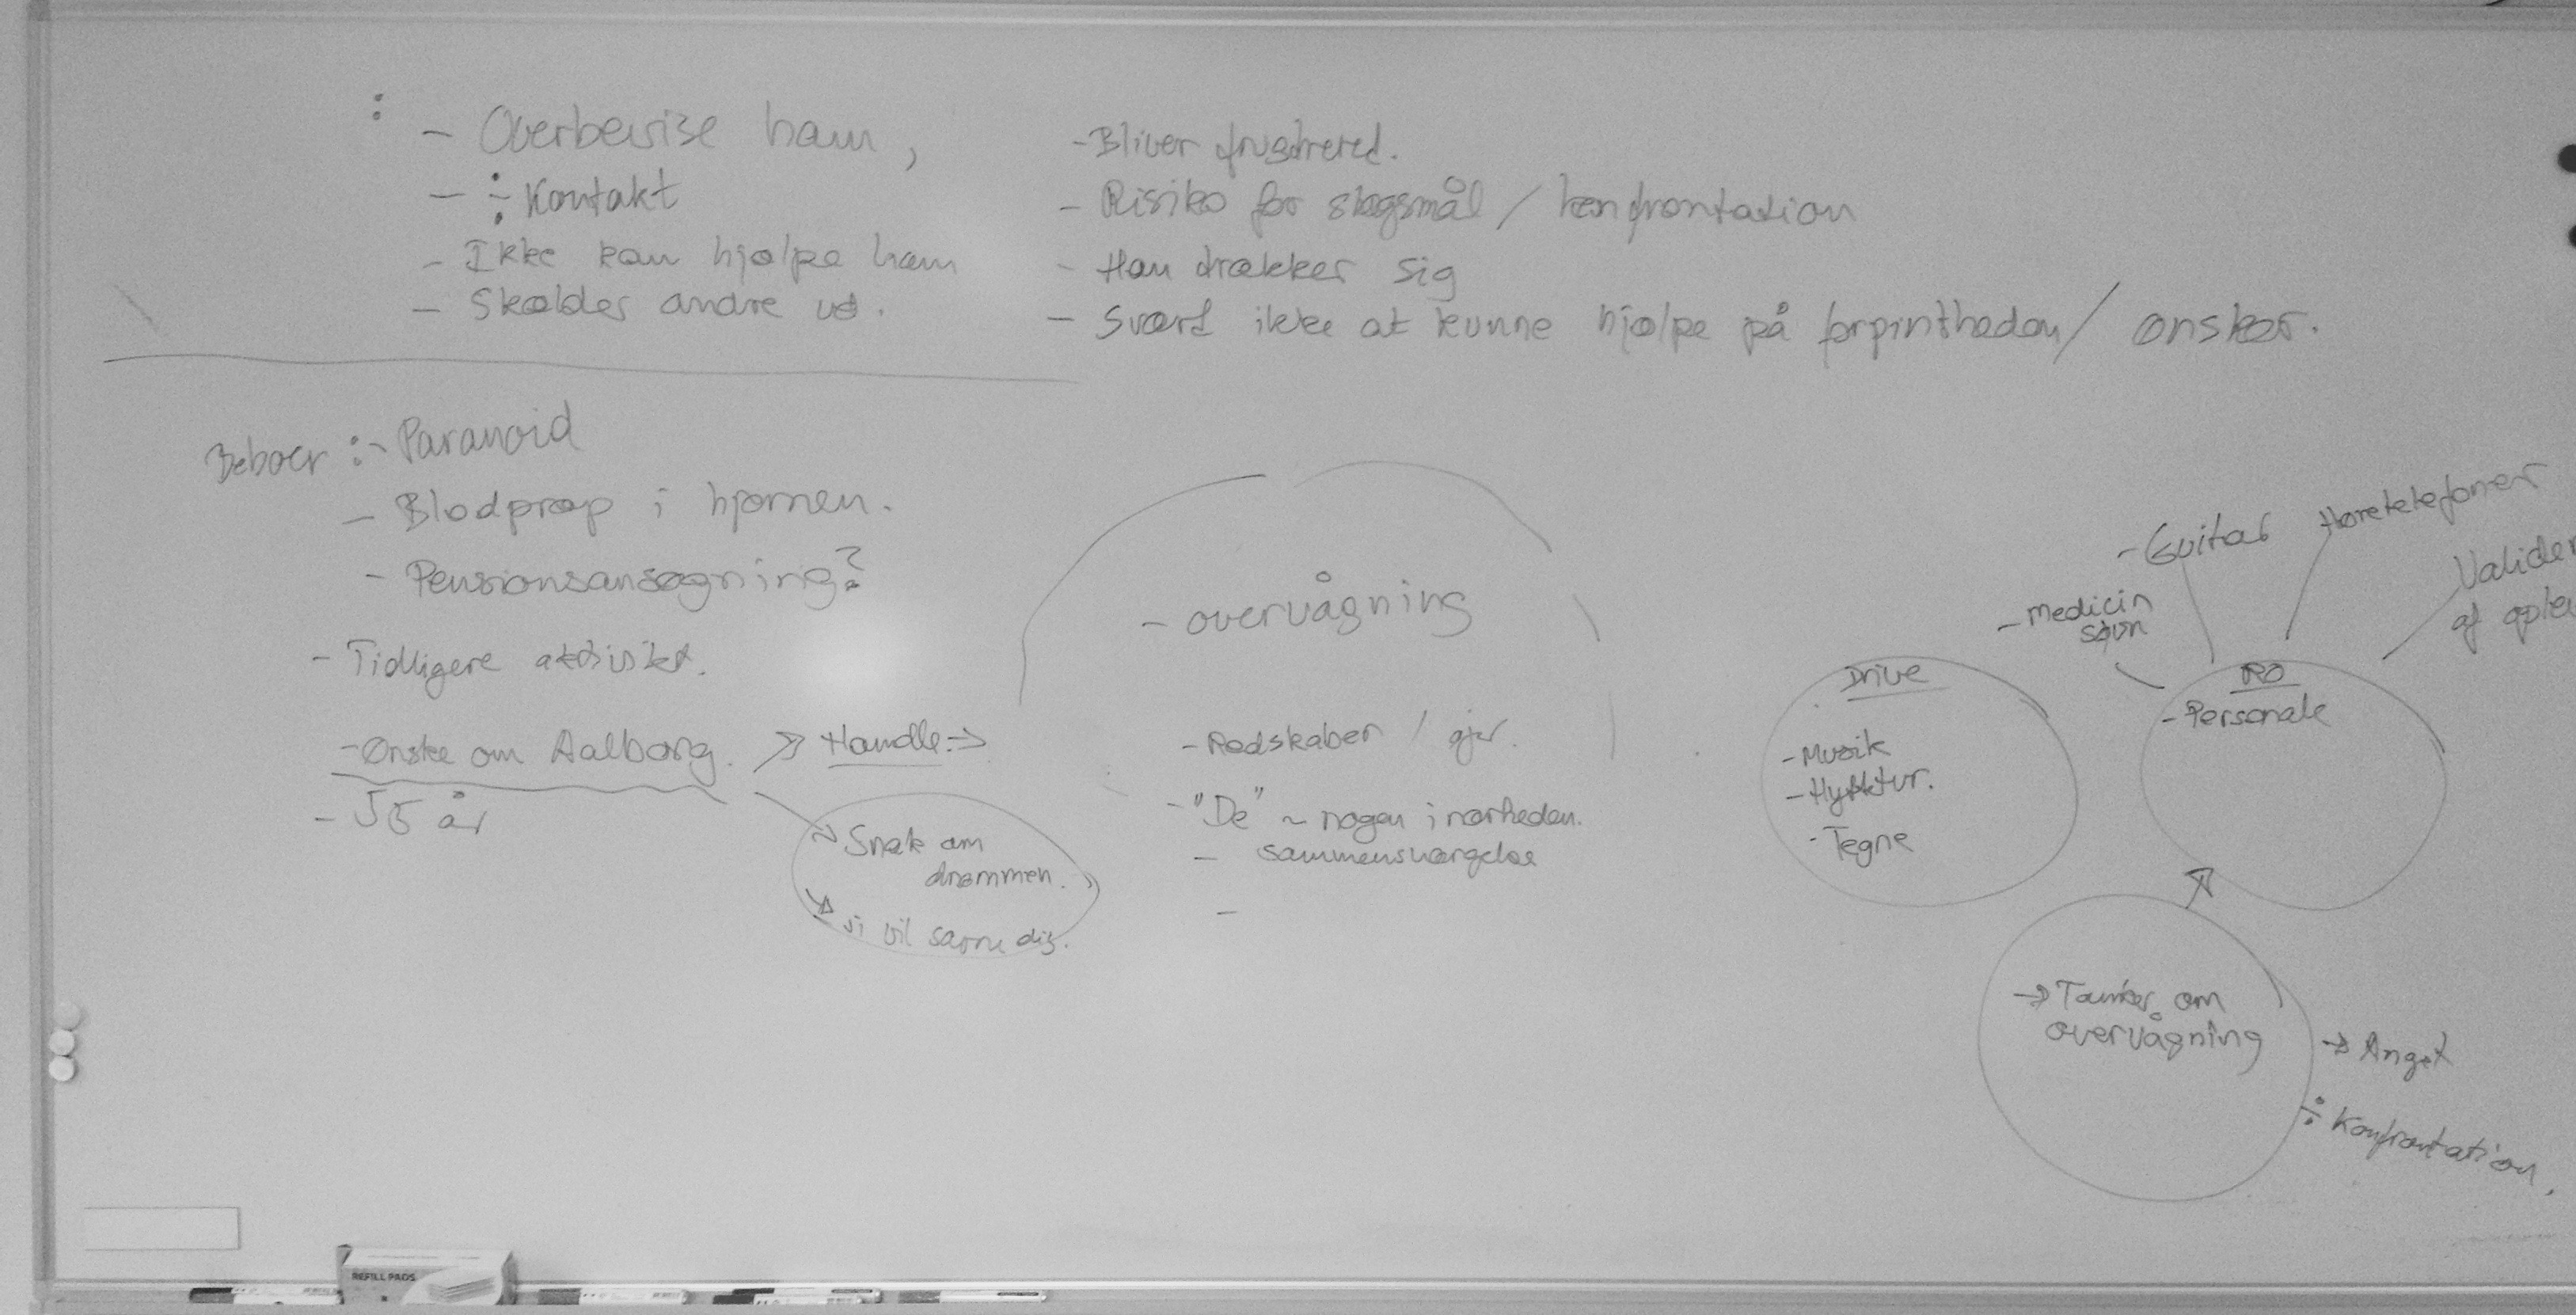 : - Overbevise ham,
- ÷ Kontakt
- Ikke kan hjælpe ham
- Skælder andre ud.
- Bliver frustreret.
- Risiko for slagsmål / konfrontation
- Han trækker sig
- Svært ikke at kunne hjælpe på forpintheden / ønsker.
Beboer :- Paranoid
- Blodprop i hjernen.
- Pensionsansøgning?
- Tidligere aktivist.
- Ønske om Aalborg. -> Handle: ->
- 55 år
-> Snak om
drømmen.
-> vi vil savne dig.
- overvågning
- Redskaber /
- "De" ~ nogen i nærheden.
- sammensværgelse
-
Drive
- Musik
- Tegne
- Guitar
Høretelefoner
- Medicin
søvn
af
RO
- Personale
-> Tanker om
overvågning
-> Angst
÷ Konfrontation.
REFILL PADS